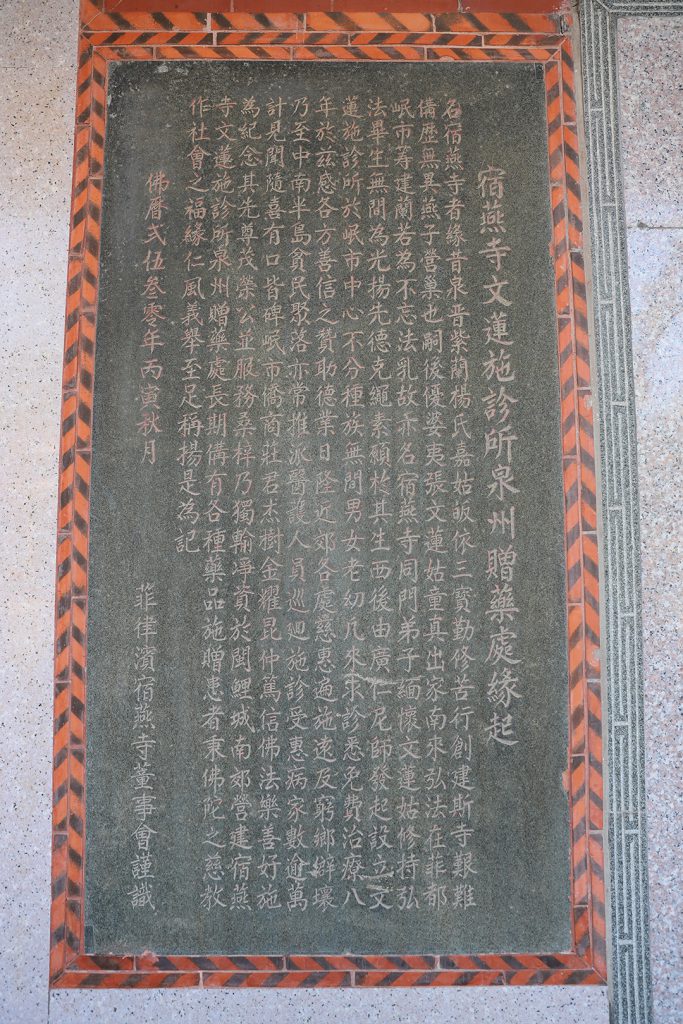 宿燕寺文蓮施診所泉州贈藥處緣起
名宿燕寺者緣昔泉晋紫蘭楊氏嘉姑皈依三寳勤修苦行創建斯寺艱難
備歷無異燕子營巢也嗣後優婆夷張文蓮姑童真出家南來弘法在菲都
岷市募建蘭若為不忘法乳故亦名宿燕寺同門弟子緬懷文蓮姑修持弘
法畢生無間為光揚先德克繩素願於其生西後由廣仁尼師發起設立文
蓮施診所於岷市中心不分種族無問男女老幼凡來求診悉免費治療八
年於茲感各方善信之贊助德業日隆近郊各處慈惠遍施遠及窮鄉僻壤
乃至中南半島貧民聚落亦常推派醫護人員巡迴施診受惠病家數逾萬
計見聞隨喜有口皆碑岷市僑商莊君杰樹金耀昆仲篤信佛法樂善好施
為紀念其先尊茂榮公並服務桑梓乃獨輸淨資於閩鯉城南郊營建宿燕
寺文蓮施診所泉州贈藥處長期備有各種藥品施贈患者秉佛陀之慈教
作社會之福緣仁風義舉至足稱揚是為記
佛曆弍伍叁零年丙寅秋月
菲律濱宿燕寺董事會謹識